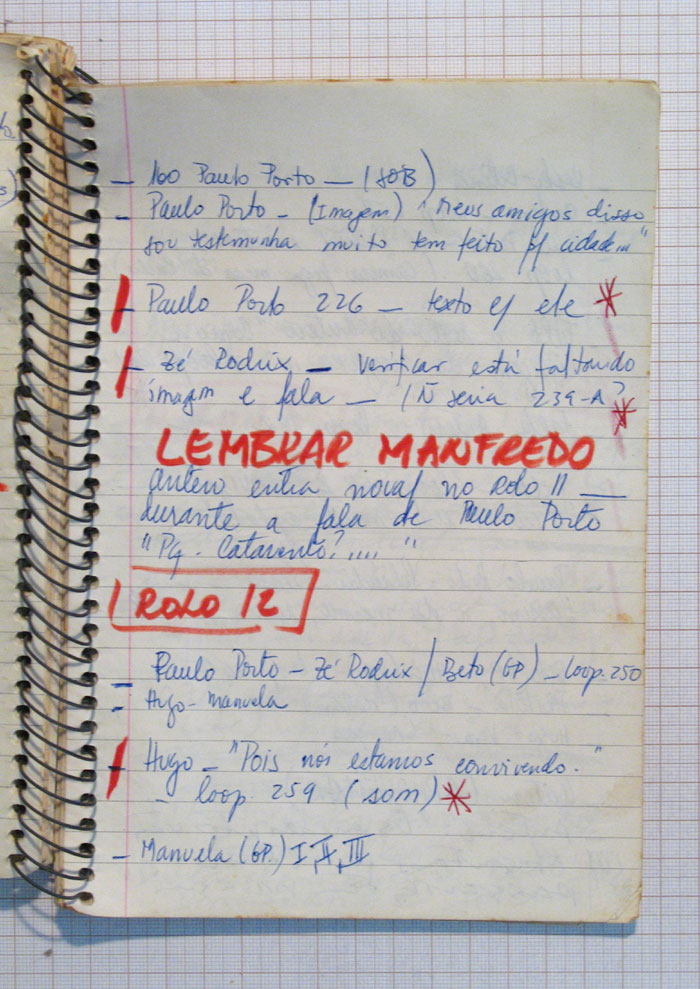 - 160 Paulo Porto - (SOB)
- Paulo Porto - (Imagem) "Meus amigos disso
sou testemunha muito tem feito p/ cidade..."
- Paulo Porto 226 - texto c/ ele *
- Zé Rodrix - verificar está faltando
imagem e fala - (Ñ seria 239-A? *
LEMBRAR MANFREDO
Antero entra no rolo 11 -
durante a fala de Paulo Porto
"Pq. Catavento?...."
ROLO 12
- Paulo Porto - Zé Rodrix / Beto (GP) - loop. 250
- Hugo - Manuela
- Hugo - "Pois nós estamos convivendo."
- loop 259 (som) *
- Manuela (GP.) I, II, III